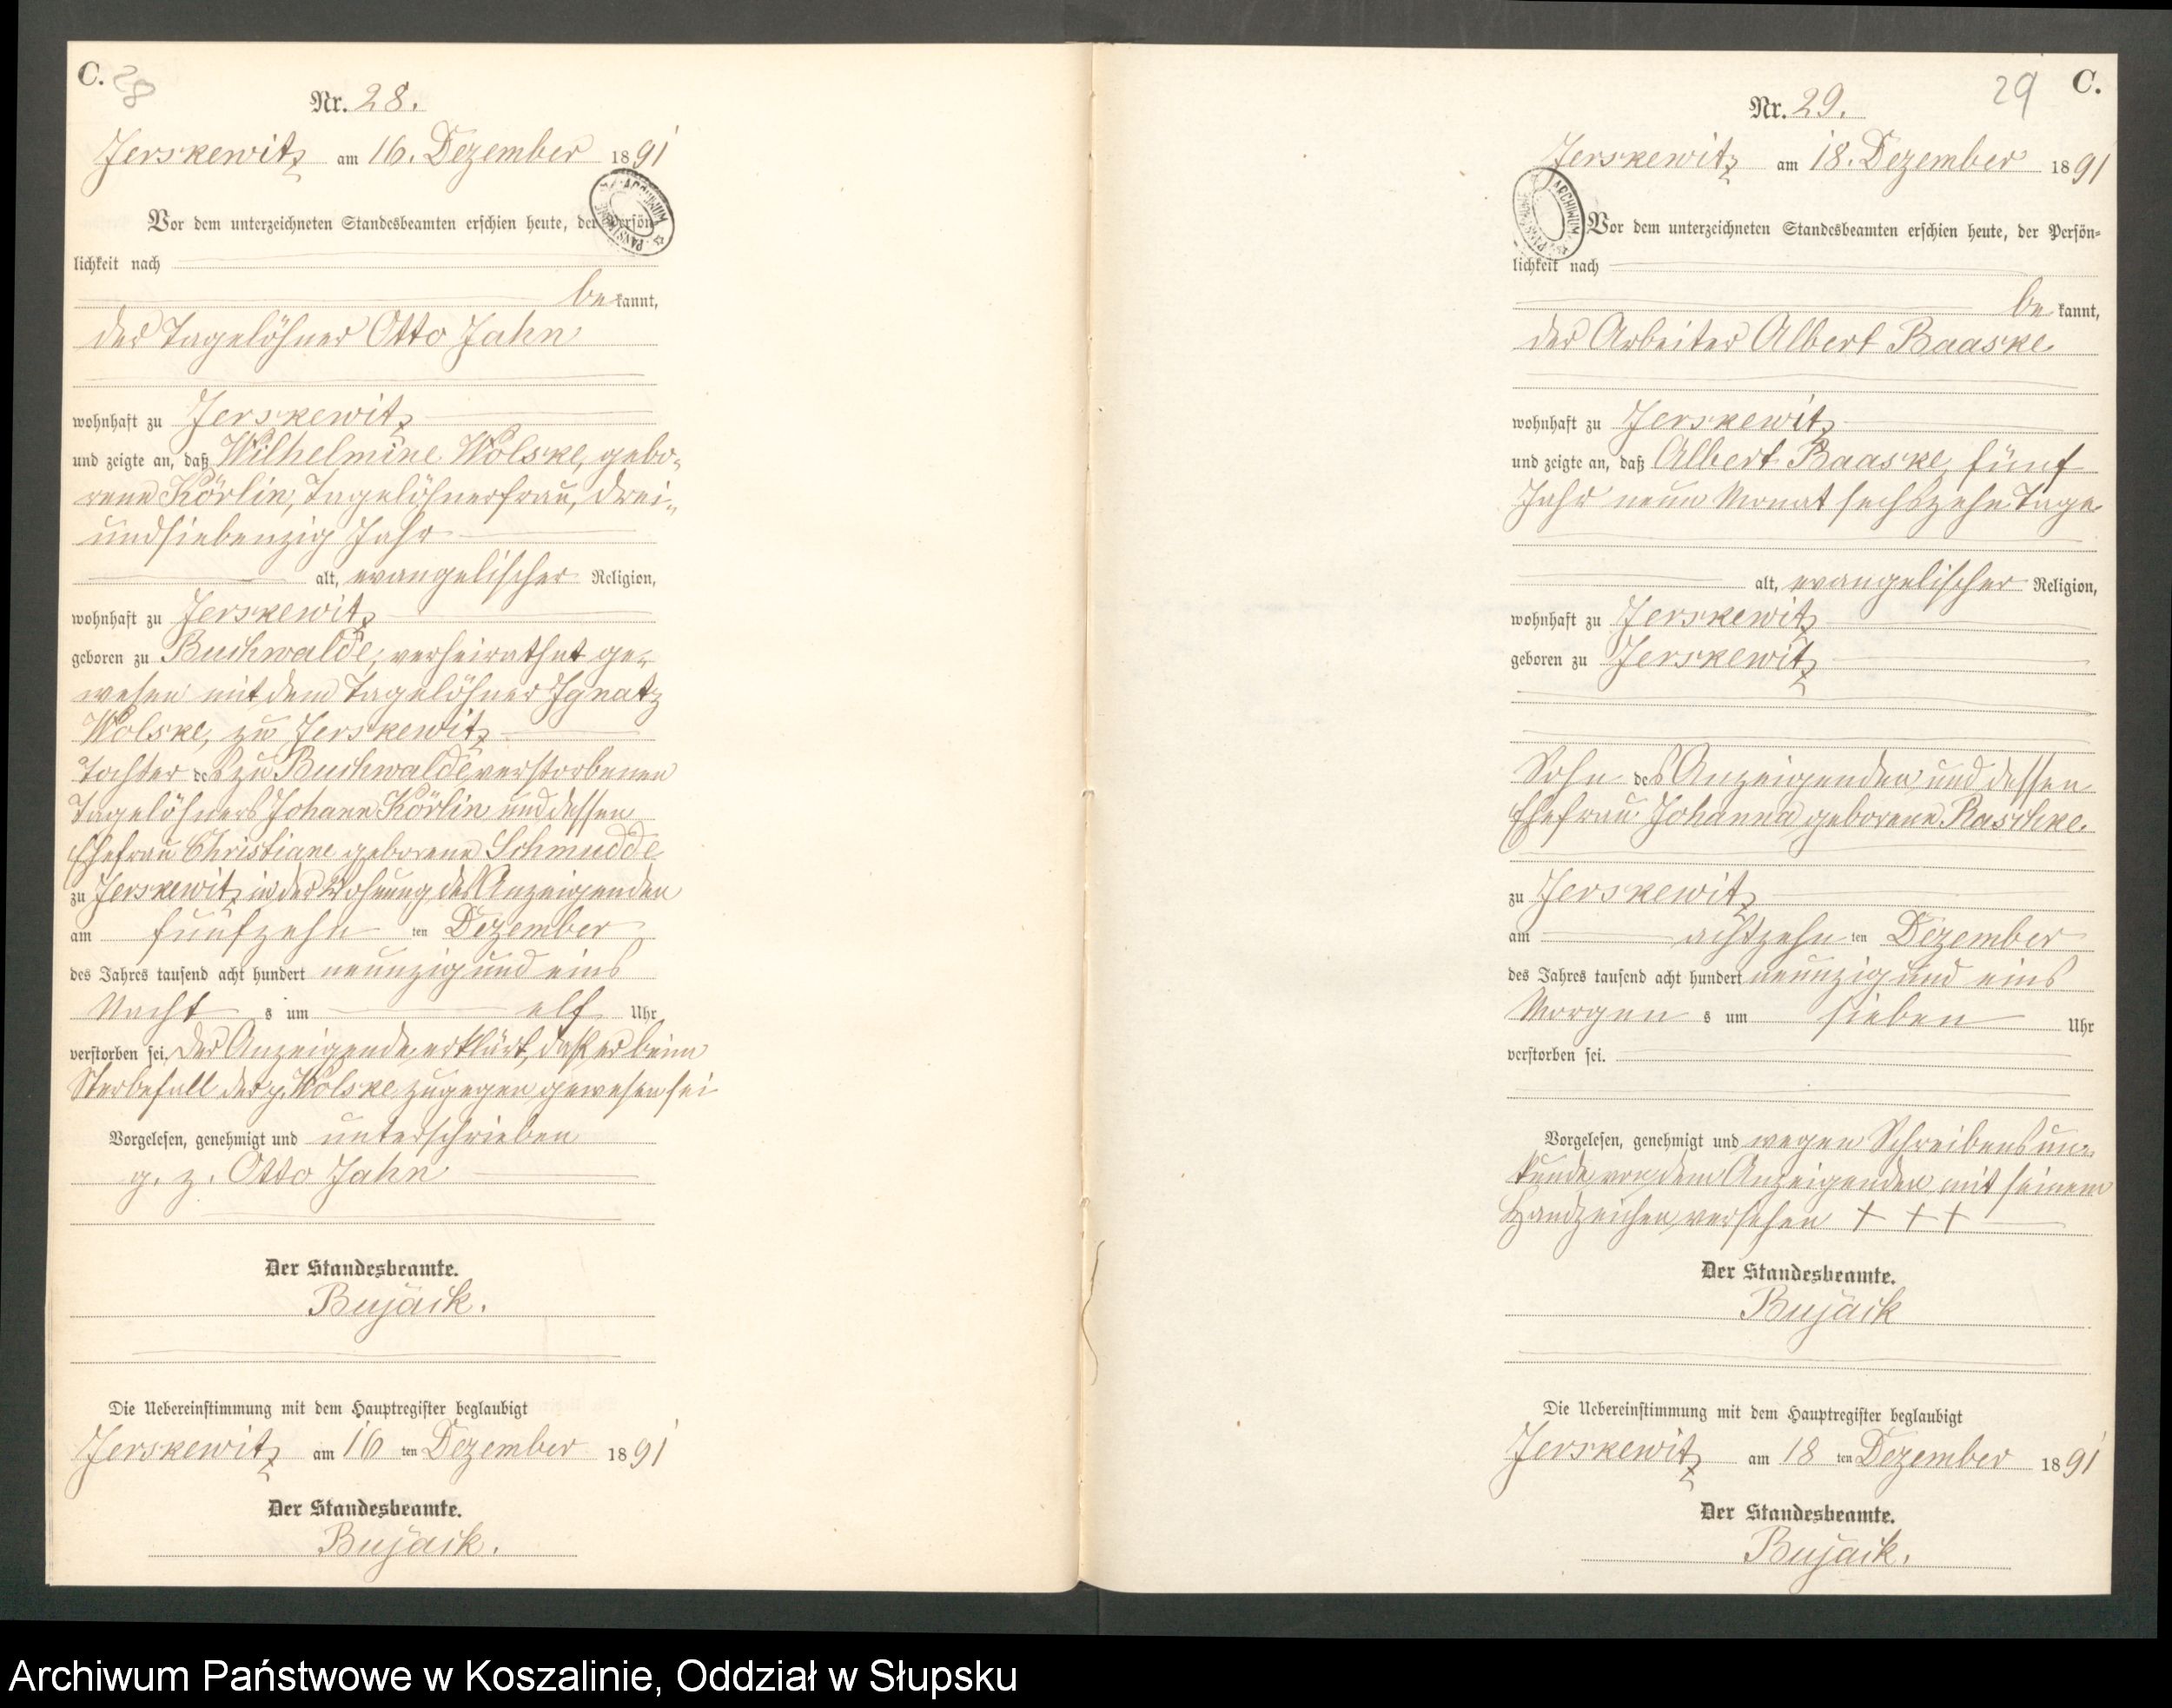 C. 28
Nr. 28.
Jerskewitz am 16. Dezember 1891
Vor dem unterzeichneten Standesbeamten erschien heute, der Persön-
lichkeit nach
be kannt,
der Tagelöhner Otto Jahn
wohnhaft zu Jerskewitz
und zeigte an, daß Wilhelmine Wolske, gebo-
rene Körlin, Tagelöhnerfrau, drei-
undsiebenzig Jahr
alt, evangelischer Religion,
wohnhaft zu Jerskewitz
geboren zu Buchwalde, verheirathet ge-
wesen mit dem Tagelöhner Ignatz
Wolske, zu Jerskewitz
Tochter des zu Buchwalde verstorbenen
Tagelöhners Johann Körlin und dessen
Ehefrau Christiane geborene Schmudde
zu Jerskewitz in der Wohnung des Anzeigenden
am fünfzehn ten Dezember
des Jahres tausend acht hundert neunzig und eins
Nacht s um elf Uhr
verstorben sei. Der Anzeigende erklärt, daß er beim
Sterbefall der p. Wolske zugegen gewesen sei
Vorgelesen, genehmigt und unterschrieben
g. z. Otto Jahn
Der Standesbeamte.
Bujack.
Die Uebereinstimmung mit dem Hauptregister beglaubigt
Jerskewitz am 16 ten Dezember 1891
Der Standesbeamte.
Bujack.
29 C.
Nr. 29.
Jerskewitz am 18. Dezember 1891
Vor dem unterzeichneten Standesbeamten erschien heute, der Persön-
lichkeit nach
be kannt,
der Arbeiter Albert Baaske
wohnhaft zu Jerskewitz
und zeigte an, daß Albert Baaske, fünf
Jahr neun Monat sechszehn Tage
alt, evangelischer Religion,
wohnhaft zu Jerskewitz
geboren zu Jerskewitz
Sohn des Anzeigenden und dessen
Ehefrau Johanna geborene Raschke.
zu Jerskewitz
am achtzehn ten Dezember
des Jahres tausend acht hundert neunzig und eins
Morgen s um sieben Uhr
verstorben sei.
Vorgelesen, genehmigt und wegen Schreibensun-
kunde von dem Anzeigenden mit seinem
Handzeichen versehen + + +
Der Standesbeamte.
Bujack
Die Uebereinstimmung mit dem Hauptregister beglaubigt
Jerskewitz am 18 ten Dezember 1891
Der Standesbeamte.
Bujack.
Archiwum Państwowe w Koszalinie, Oddział w Słupsku